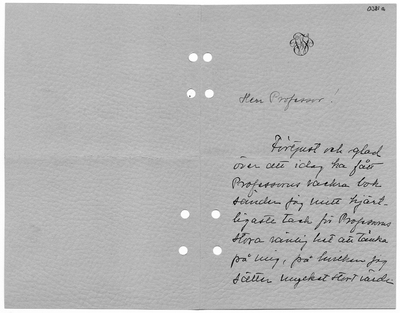 Herr Professor!
Förtjust och glad
över att idag ha fått
Professorns vackra bok
sänder jag mitt hjärt-
ligaste tack för Professorns
stora vänlighet att tänka
på mig, på hvilken jag
sätter mycket stort värde